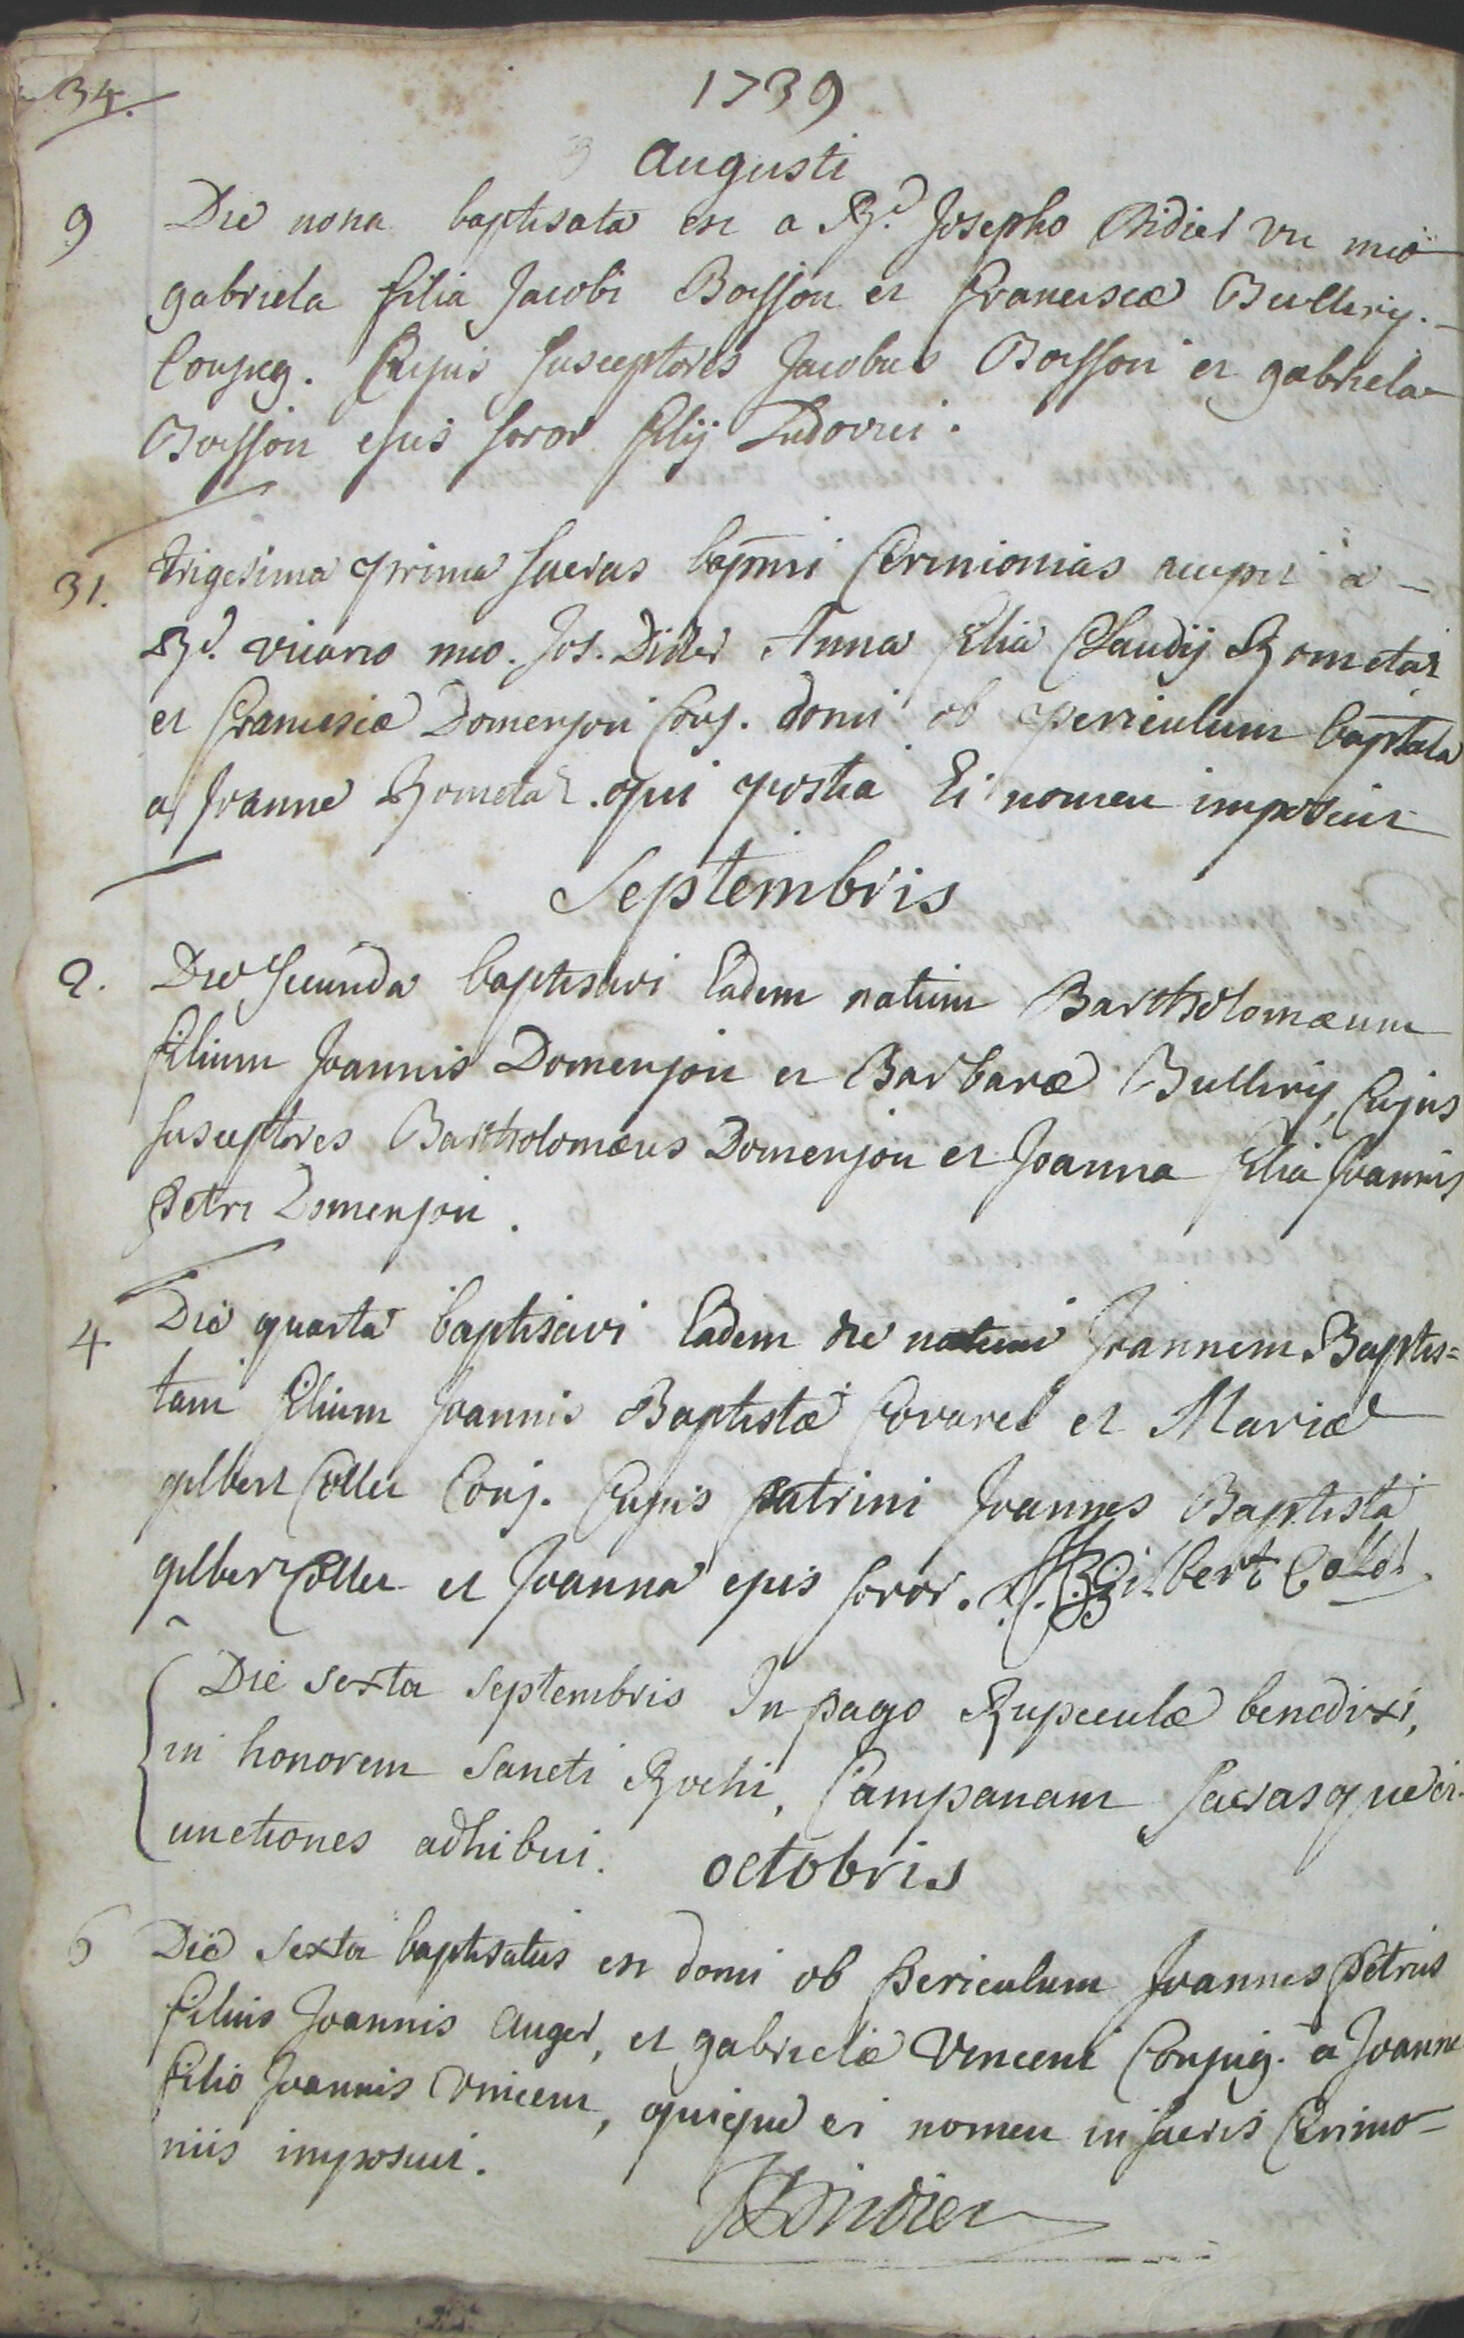 34.
1739
Augusti
9 Die nona baptisata est a Rd. Josepho Didier vic meo
gabriela filia Jacobi Boisson et franciscæ Bulliery.
Conjug. Cujus susceptores Jacobus Boisson et gabriela
Boisson ejus soror filij Ludovici.
31. trigesima prima sacras bapmi Ceremonias accepit a
Rd. vicario meo. Jos. Didier Anna filia Claudij Rometar
et franciscæ Domenjon Conj. domi ob periculum baptata
a Joanne Rometar. qui postea Ei nomen imposuit
Septembris
2. Die secunda baptisavi Eadem natum Bartholomæum
filium Joannis Domenjon et Barbaræ Bulliery, Cujus
susceptores Bartholomæus Domenjon et Joanna filia Joannis
Petri Domenjon.
4 Die quarta baptisavi Eadem die natum Joannem Baptis=
tam filium Joannis Baptistæ Covarel et Mariæ
gilbert Collet Conj. Cujus patrini Joannes Baptista
gilbert Collet et Joanna ejus soror. Gilbert Collet.
Die sexta Septembris In pago Rupeculæ benedixi,
in honorem Sancti Rochi, Campanam sacrasque ei
unctiones adhibui.
octobris
6 Die Sexta baptisatus est domi ob Periculum Joannes Petrus
filius Joannis Auger, et gabrielæ Vincent Conjug. a Joanne
filio Joannis Vincent, quique ei nomen in sacris Cerimo-
niis imposuit.
Didier